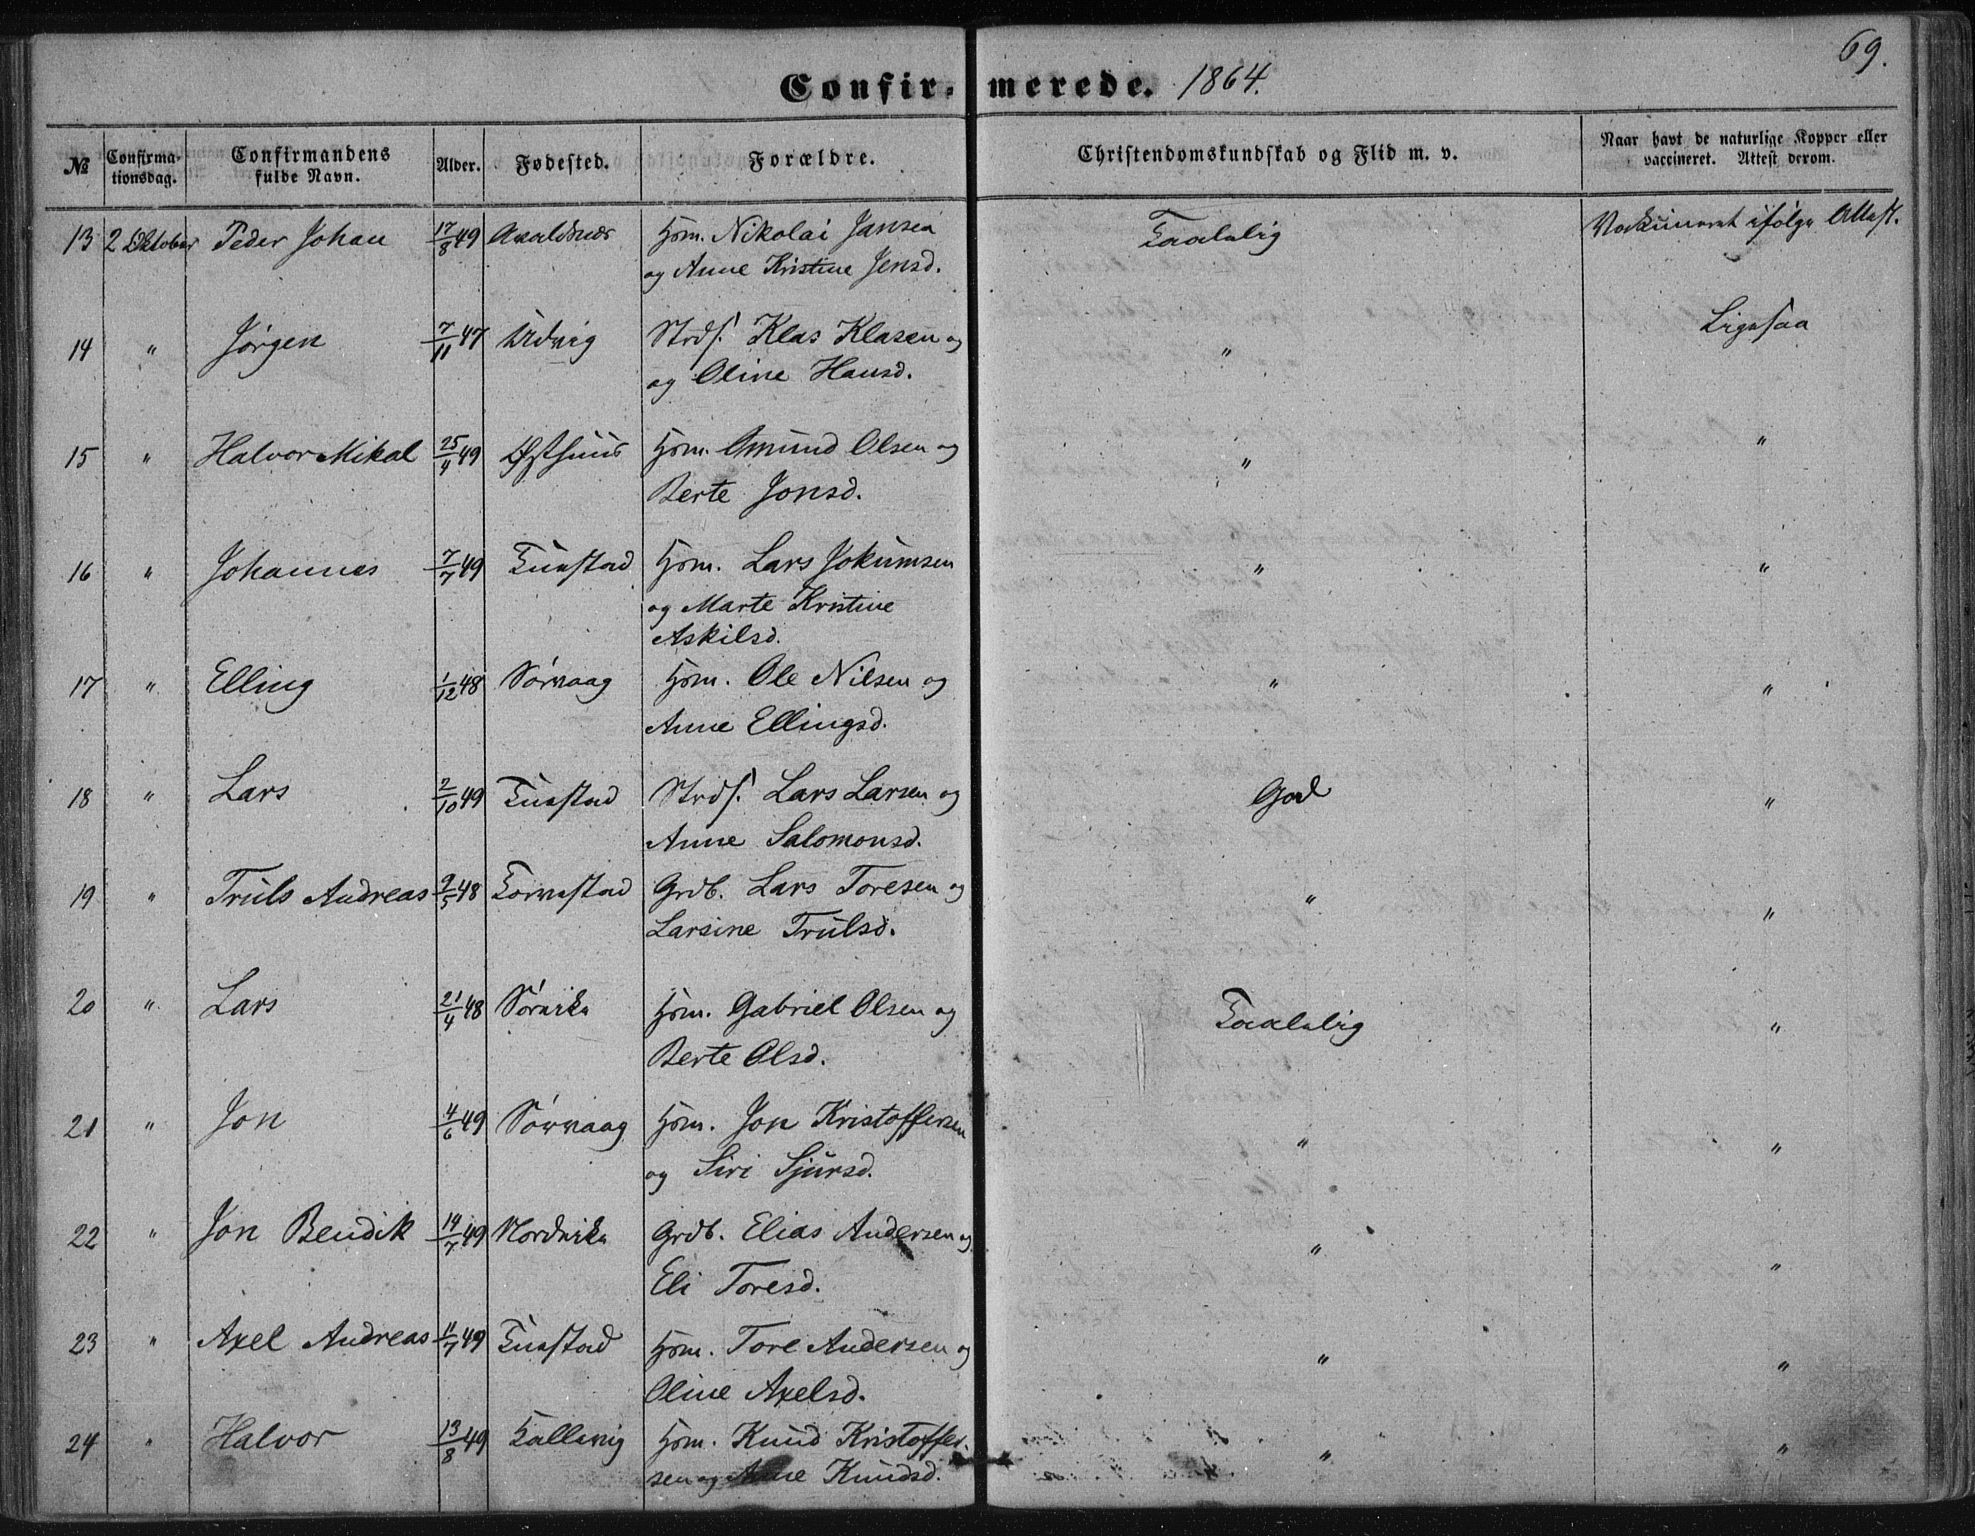 69.
Confir- merede. 1864.
№ Confirma-tionsdag. Confirmandens fulde Navn. Alder. Fødested. Forældre. Christendomskundskab og Flid m. v. Naar havt de naturlige Kopper eller vaccineret. Attest derom.
13 2 Oktober Peder Johan 17/8 49 Avaldsnes Hsm. Nikolai Jansen Taalelig Vackcineret ifølge Attest.
og Anne Kristine Jensd.
14 " Jørgen 7/11 47 Udvig Strds. Klas Klasen og " Ligesaa
og Oline Hansd.
15 " Halvor Mikal 25/4 49 Østhuus Hsm. Amund Olsen og " "
Berte Jonsd.
16 " Johannes 7/7 49 Tuastad Hsm. Lars Jokumsen " "
og Marte Kristine
Askilsd.
17 " Elling 1/12 48 Sørvaag Hsm. Ole Nilsen og " "
Anne Ellingsd.
18 " Lars 2/10 49 Tuastad Strds. Lars Larsen og God "
Anne Salomonsd.
19 " Truls Andreas 9/5 48 Torvestad Grdb. Lars Toresen og " "
Larsine Trulsd.
20 " Lars 21/4 48 Sørvike Hsm. Gabriel Olsen og Taalelig "
Berte Olsd.
21 " Jon 4/6 49 Sørvaag Hsm. Jon Kristoffersen " "
og Siri Sjursd.
22 " Jon Bendik 14/7 49 Nordvike Grdb. Elias Andersen og " "
Eli Toresd.
23 " Axel Andreas 11/7 49 Tuastad Hsm. Tore Andersen og " "
Oline Axelsd.
24 " Halvor 13/8 49 Kallevig Hsm. Knud Kristoffer- " "
sen og Anne Knudsd.